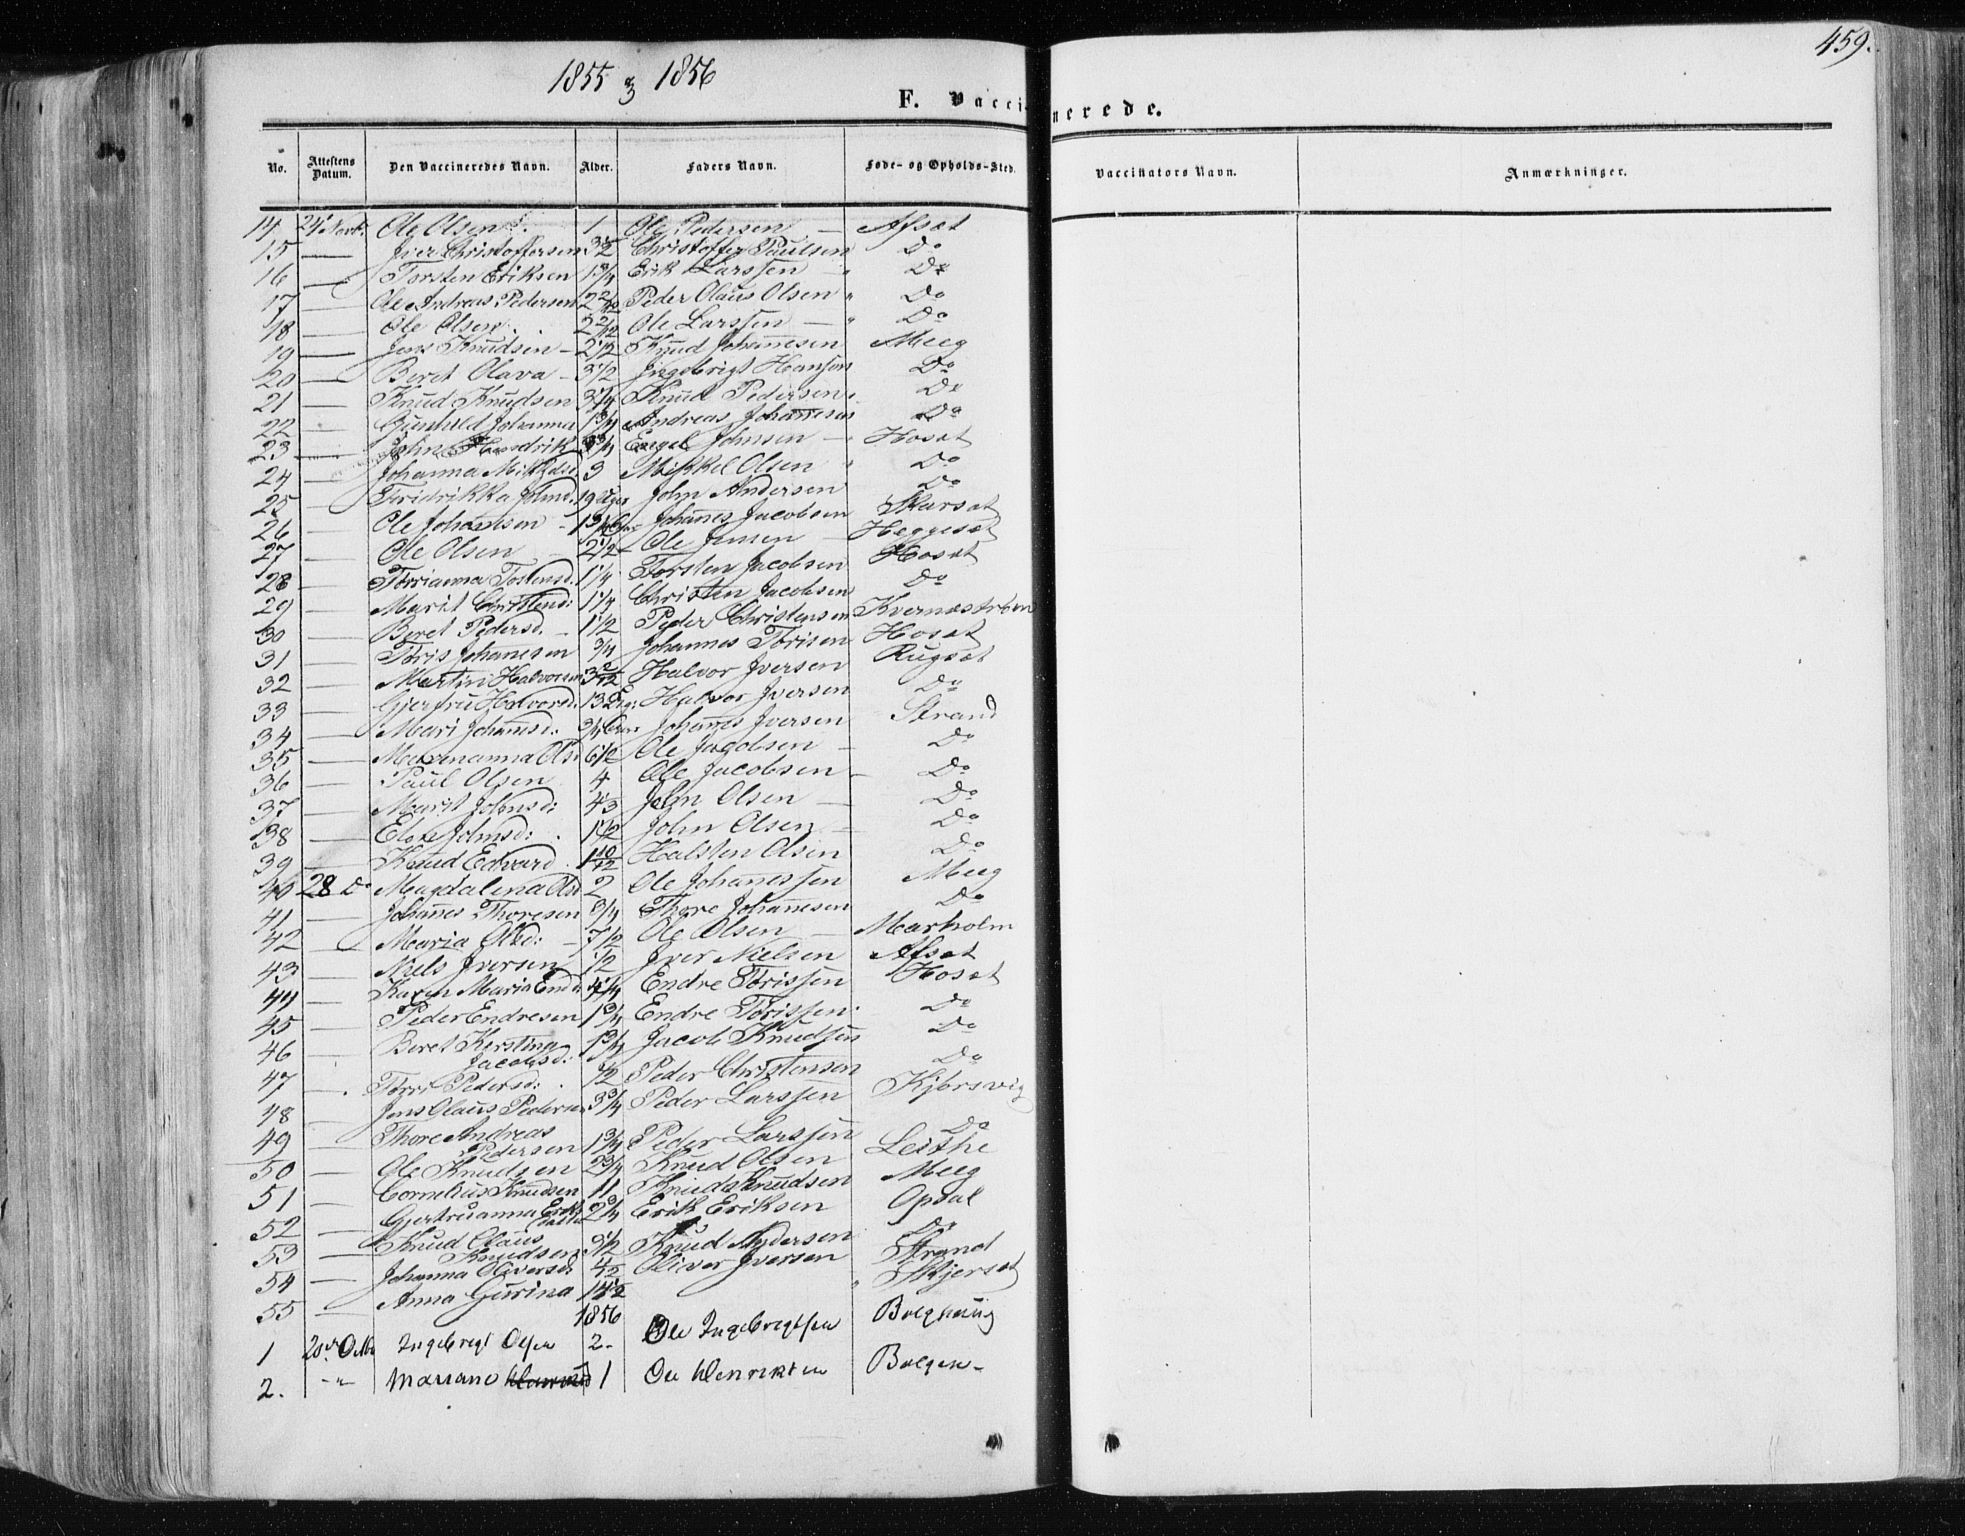 1855 & 1856
459.
F. Vaccinerede.
No. Attestens Datum. Den Vaccineredes Navn. Alder. Faders Navn. Føde- og Opholds-Sted. Vaccinators Navn. Anmærkninger.
14 24 Novb. Ole Olsen 1 Ole Pedersen — Alsæt
15 — Iver Christoffersen 3 1/2 Christoffer Paulsen Do
16 — Torsten Eriksen 1 3/4 Erik Larssen Do
17 — Ole Andreas Pedersen 2 2/12 Peder Olaus Olsen " Do
18 — Ole Olsen 2 2/12 Ole Larssen — " Do
19 — Jens Knudsen — 2 1/2 Knud Johannesen Meeg
20 — Beret Olava — 3 1/2 Ingebrigt Hansen Do
21 — Knud Knudsen 3/4 Knud Pedersen Do
22 — Gunhild Johanna 1 3/4 Andreas Johannesen Do
23 — John Hendrik 3/4 Engel Johnsen — Hosæt
24 — Johanna Mikkelsd. 3 Mikkel Olsen " Do
25 — Fredrikka Johnd. 19 Uger John Andersen Do
26 — Ole Johansen - 1 3/4 Johannes Jacobsen Skarsæt
27 — Ole Olsen 2 1/2 Ole Jensen — Heggesæt
28 — Torrianna Tostensd. 1 1/4 Torsten Jacobsen Hosæt
29 — Marit Christensd: 1 1/4 Christen Jacobsen Do
30 — Beret Pedersd. 1 1/2 Peder Christensen Kvernæstrøen
31 — Tøris Johanesen 3/4 Johannes Törisen Hosæt
32 — Martin Halvorsen 3 2/12 Halvor Iversen Rugsæt
33 — Gjertru Halvorsd. 13 Halvor Iversen Do
34 — Mari Johansd: 3/4 Johannes Iversen Strand
35 — Marenanna Ols. 6 1/2 Ole Jacobsen — Do
36 — Paul Olsen 4 Ole Jacobsen — Do
37 — Marit Johnsd: 4/3 John Olsen — Do
38 — Elen Johnsd: 1 1/2 John Olsen — Do
39 — Knud Edvard 1 10/12 Halsten Olsen Do
40 28 Do Magdalena Olsd 2 Ole Johanessen Meeg
41 — Johannes Thoresen 3/4 Thore Johannesen Do
42 — Maria Olsd: — 7/12 Ole Olsen — Marholm
43 — Niels Iversen 1/2 Iver Nielsen Alsæt
44 — Karen Maria End. 4 1/4 Endre Törissen Hosæt
45 — Peder Endresen 1 3/4 Endre Törissen Do
46 — Beret Kerstina
Jacobsd: 1 3/4 Jacob Knudsen Do
47 — Torri Pedersd: 1/2 Peder Christensen Do
48 — Jens Olaus Pedersen 3 3/4 Peder Larssen Kjörsvig
49 — Thore Andreas
Pedersen 1 3/4 Peder Larssen Do
50 — Ole Knudsen 2 3/4 Knud Olsen Leithe
51 — Cornelius Knudsen 11 Knud Knudsen Meeg
52 — Gjertruanna Eriks
datter 2 3/4 Erik Eriksen Opdal
53 — Knud Olaus
Knudsen 3 1/2 Knud Andersen Do
54 — Johanna Oliversd: 4/12 Oliver Iversen Strand
55 — Anna Gurina 14 1/2 " Skjersæt
1856
1 20de Octbr Ingebrigt Olsen 2 — Ole Ingebregtsen Bolghaug
2. — " Mariane 1 Ole Henriksen Bolgen —